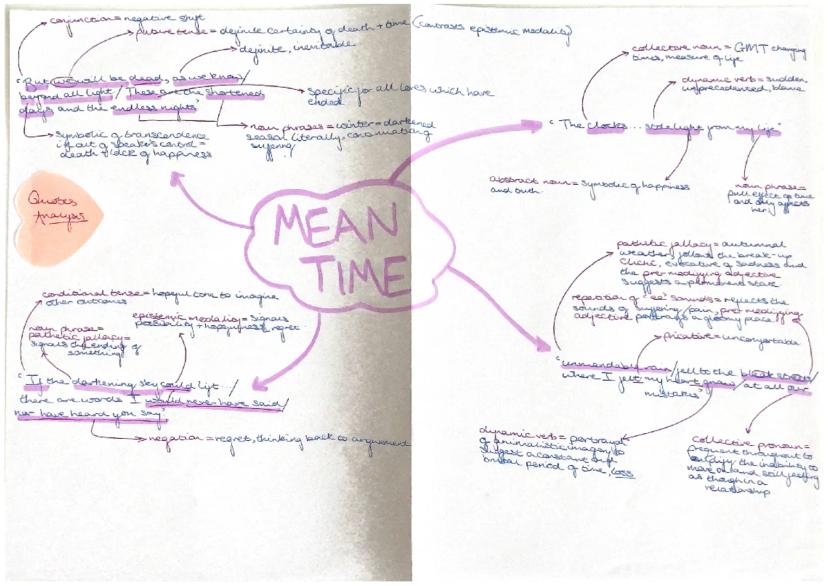 conjunction = negative shift
future tense = definite certainty of death + time (contrasts epistemic modality)
definite, inevitable
"But we will be dead, as we know/
beyond all light/ These are the shortened
days and the endless nights"
specific for all loves which have
ended
noun phrases = winter = darkened
season literally, connotating
suffering
symbolic of transcendence
if out of speaker's control =
death + lack of happiness
Quotes
Analysis
MEAN
TIME
collective noun = GMT changing
times, measure of life
dynamic verb = sudden,
unprecedented, blame
"The clocks... stole light from my life"
abstract noun = symbolic of happiness
and truth
noun phrase =
full effect of time
and only affects
her
conditional tense = hopeful tone to imagine
other outcomes
epistemic modality = signals
possibility + hopefulness/regret
noun phrase =
pathetic fallacy =
signals the ending of
something
"If the darkening sky could lift.../
there are words I would never have said/
nor have heard you say"
negation = regret, thinking back to argument
pathetic fallacy = autumnal
weather follows the break-up
Cliché, evocative of sadness and
the pre-modifying adjective
suggests a permanent state
repetition of "ee" sounds = reflects the
sounds of suffering/pain, pre-modifying
adjective portrays a gloomy place
fricative = uncomfortable
"unmendable rain/ fell to the bleak streets/
where I felt my heart gnaw/ at all our
mistakes"
dynamic verb = portrayal
of animalistic imagery to
suggest a constant and
brutal period of time, loss
collective pronoun =
frequent throughout to
the inability to
move on and still feeling
as though in a
relationship